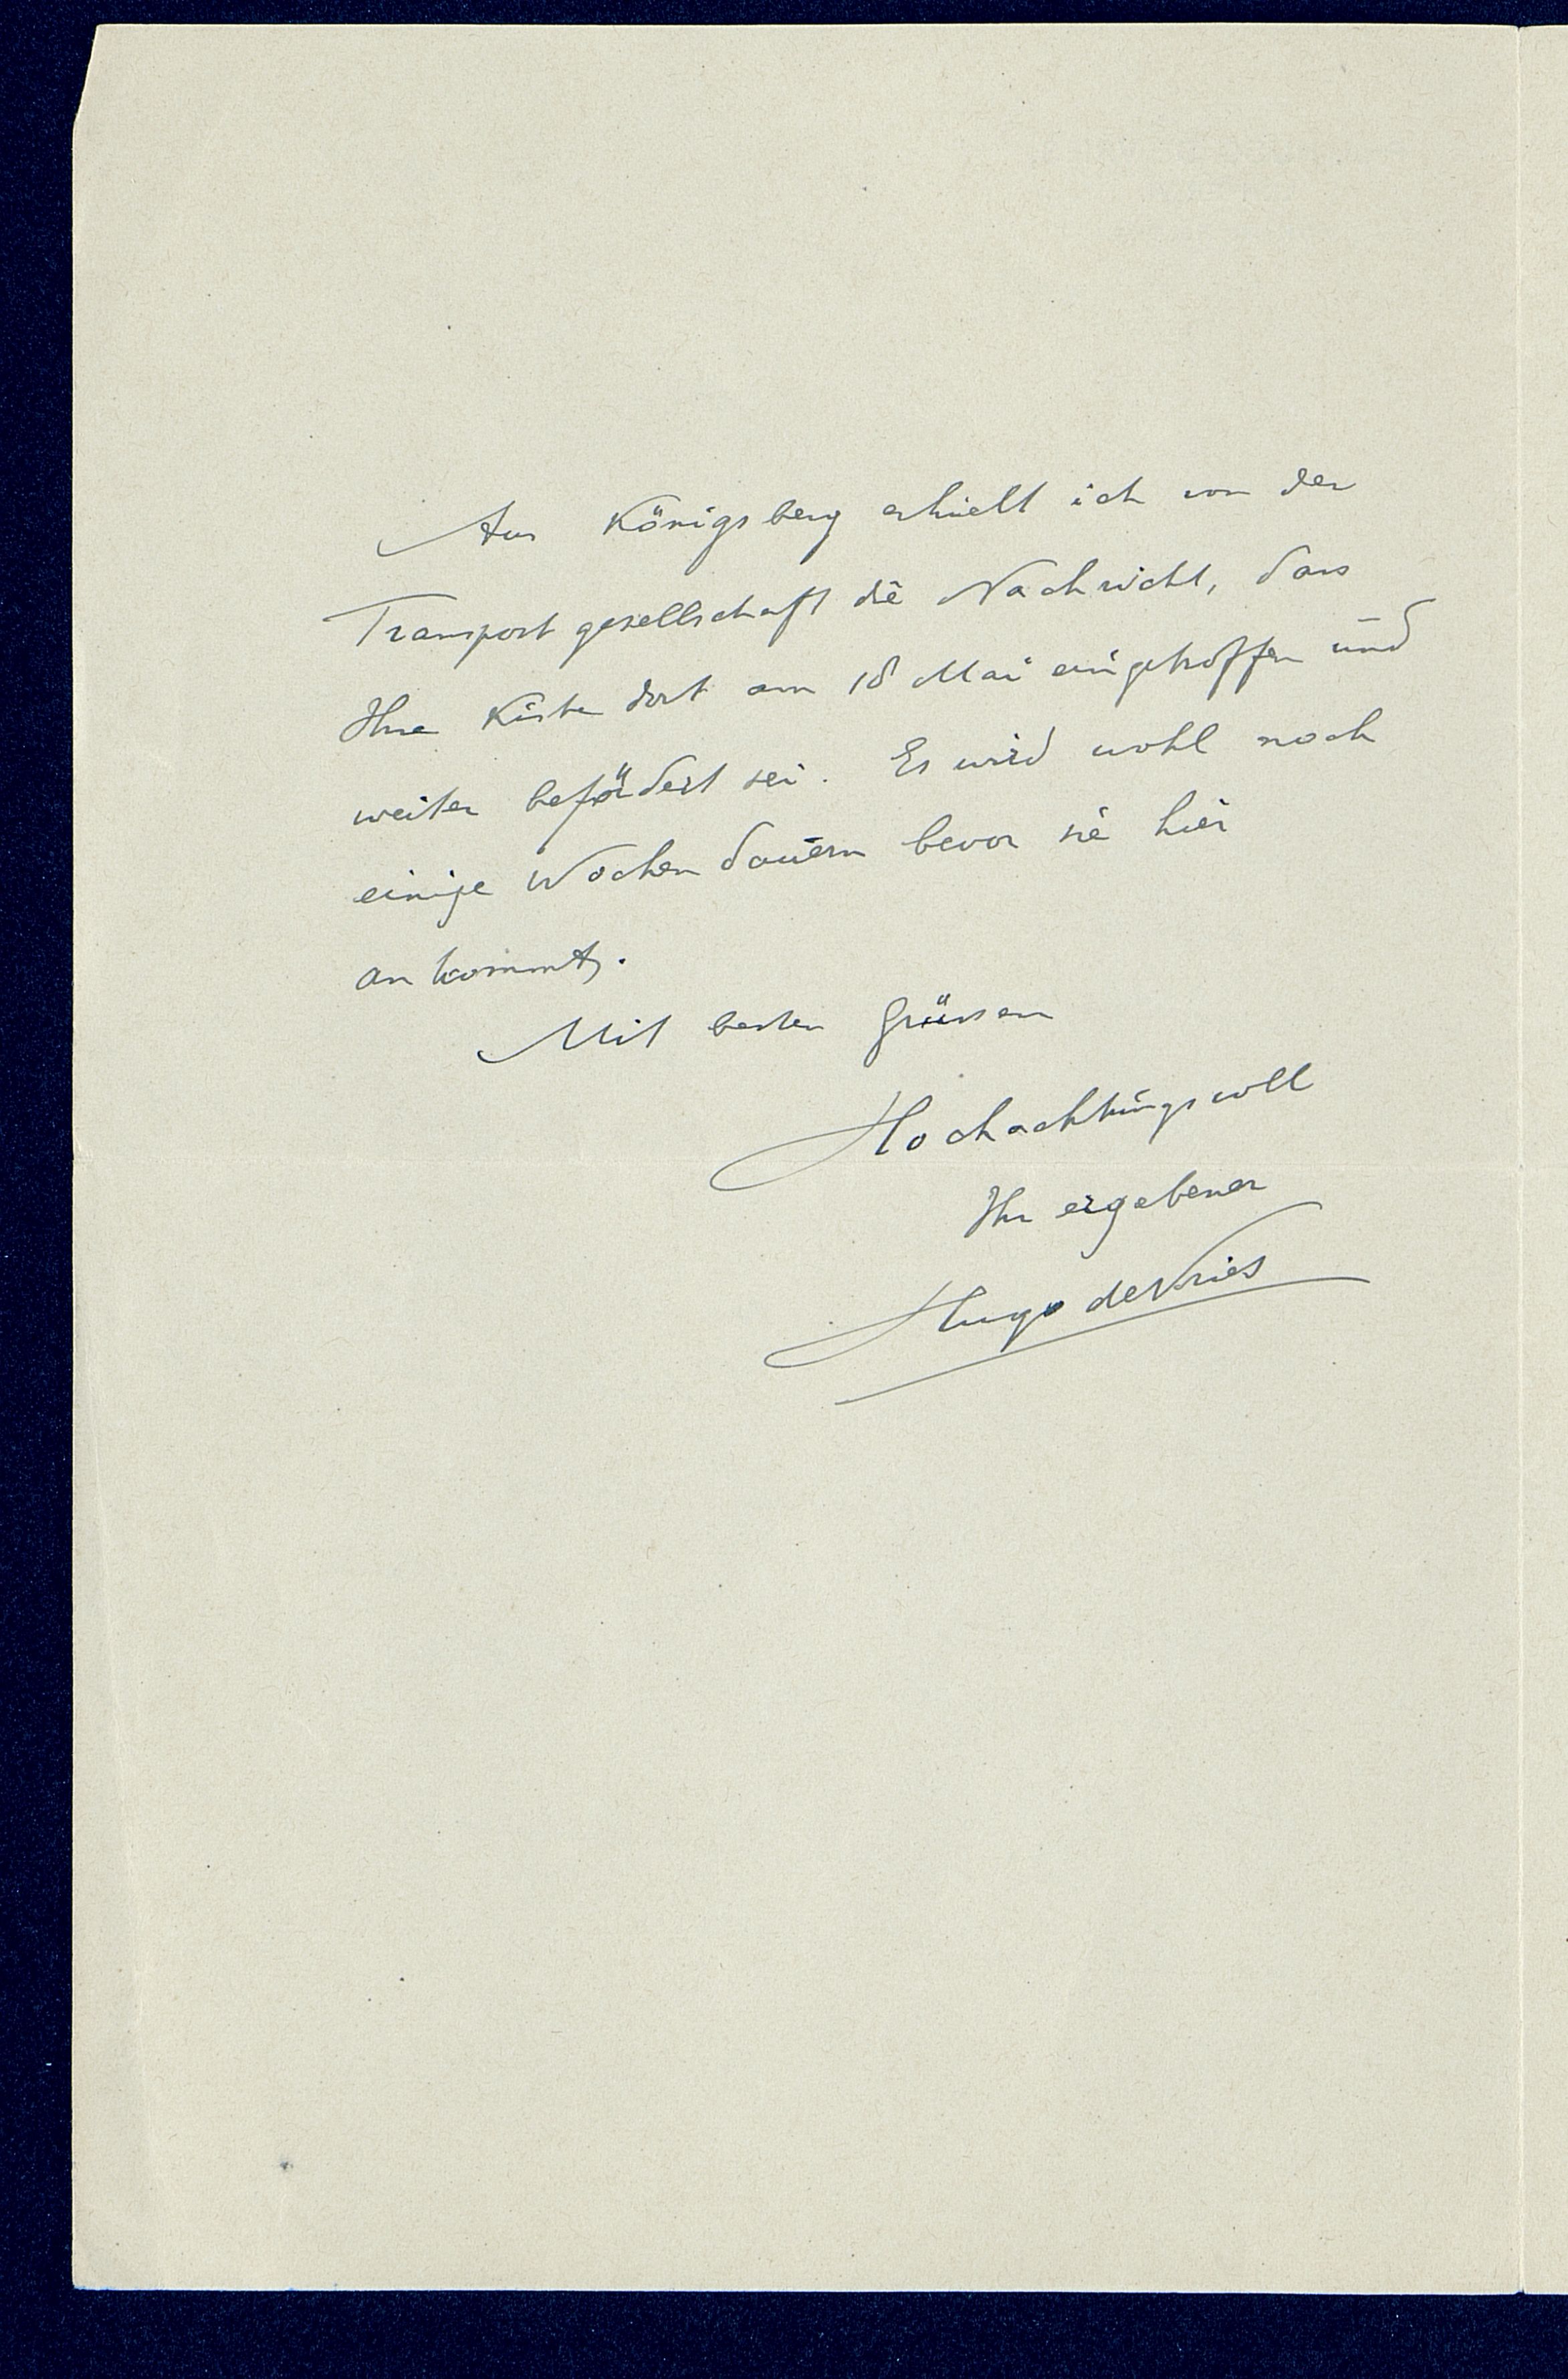 Aus Königsberg erhielt ich von der
Transportgesellschaft die Nachricht, dass
Ihre Kiste dort am 18 Mai eingetroffen und
weiter befördert sei. Es wird wohl noch
einige Wochen dauern bevor sie hier
ankommt.
Mit besten Grüssen
Hochachtungsvoll
Ihr ergebener
Hugo de Vries